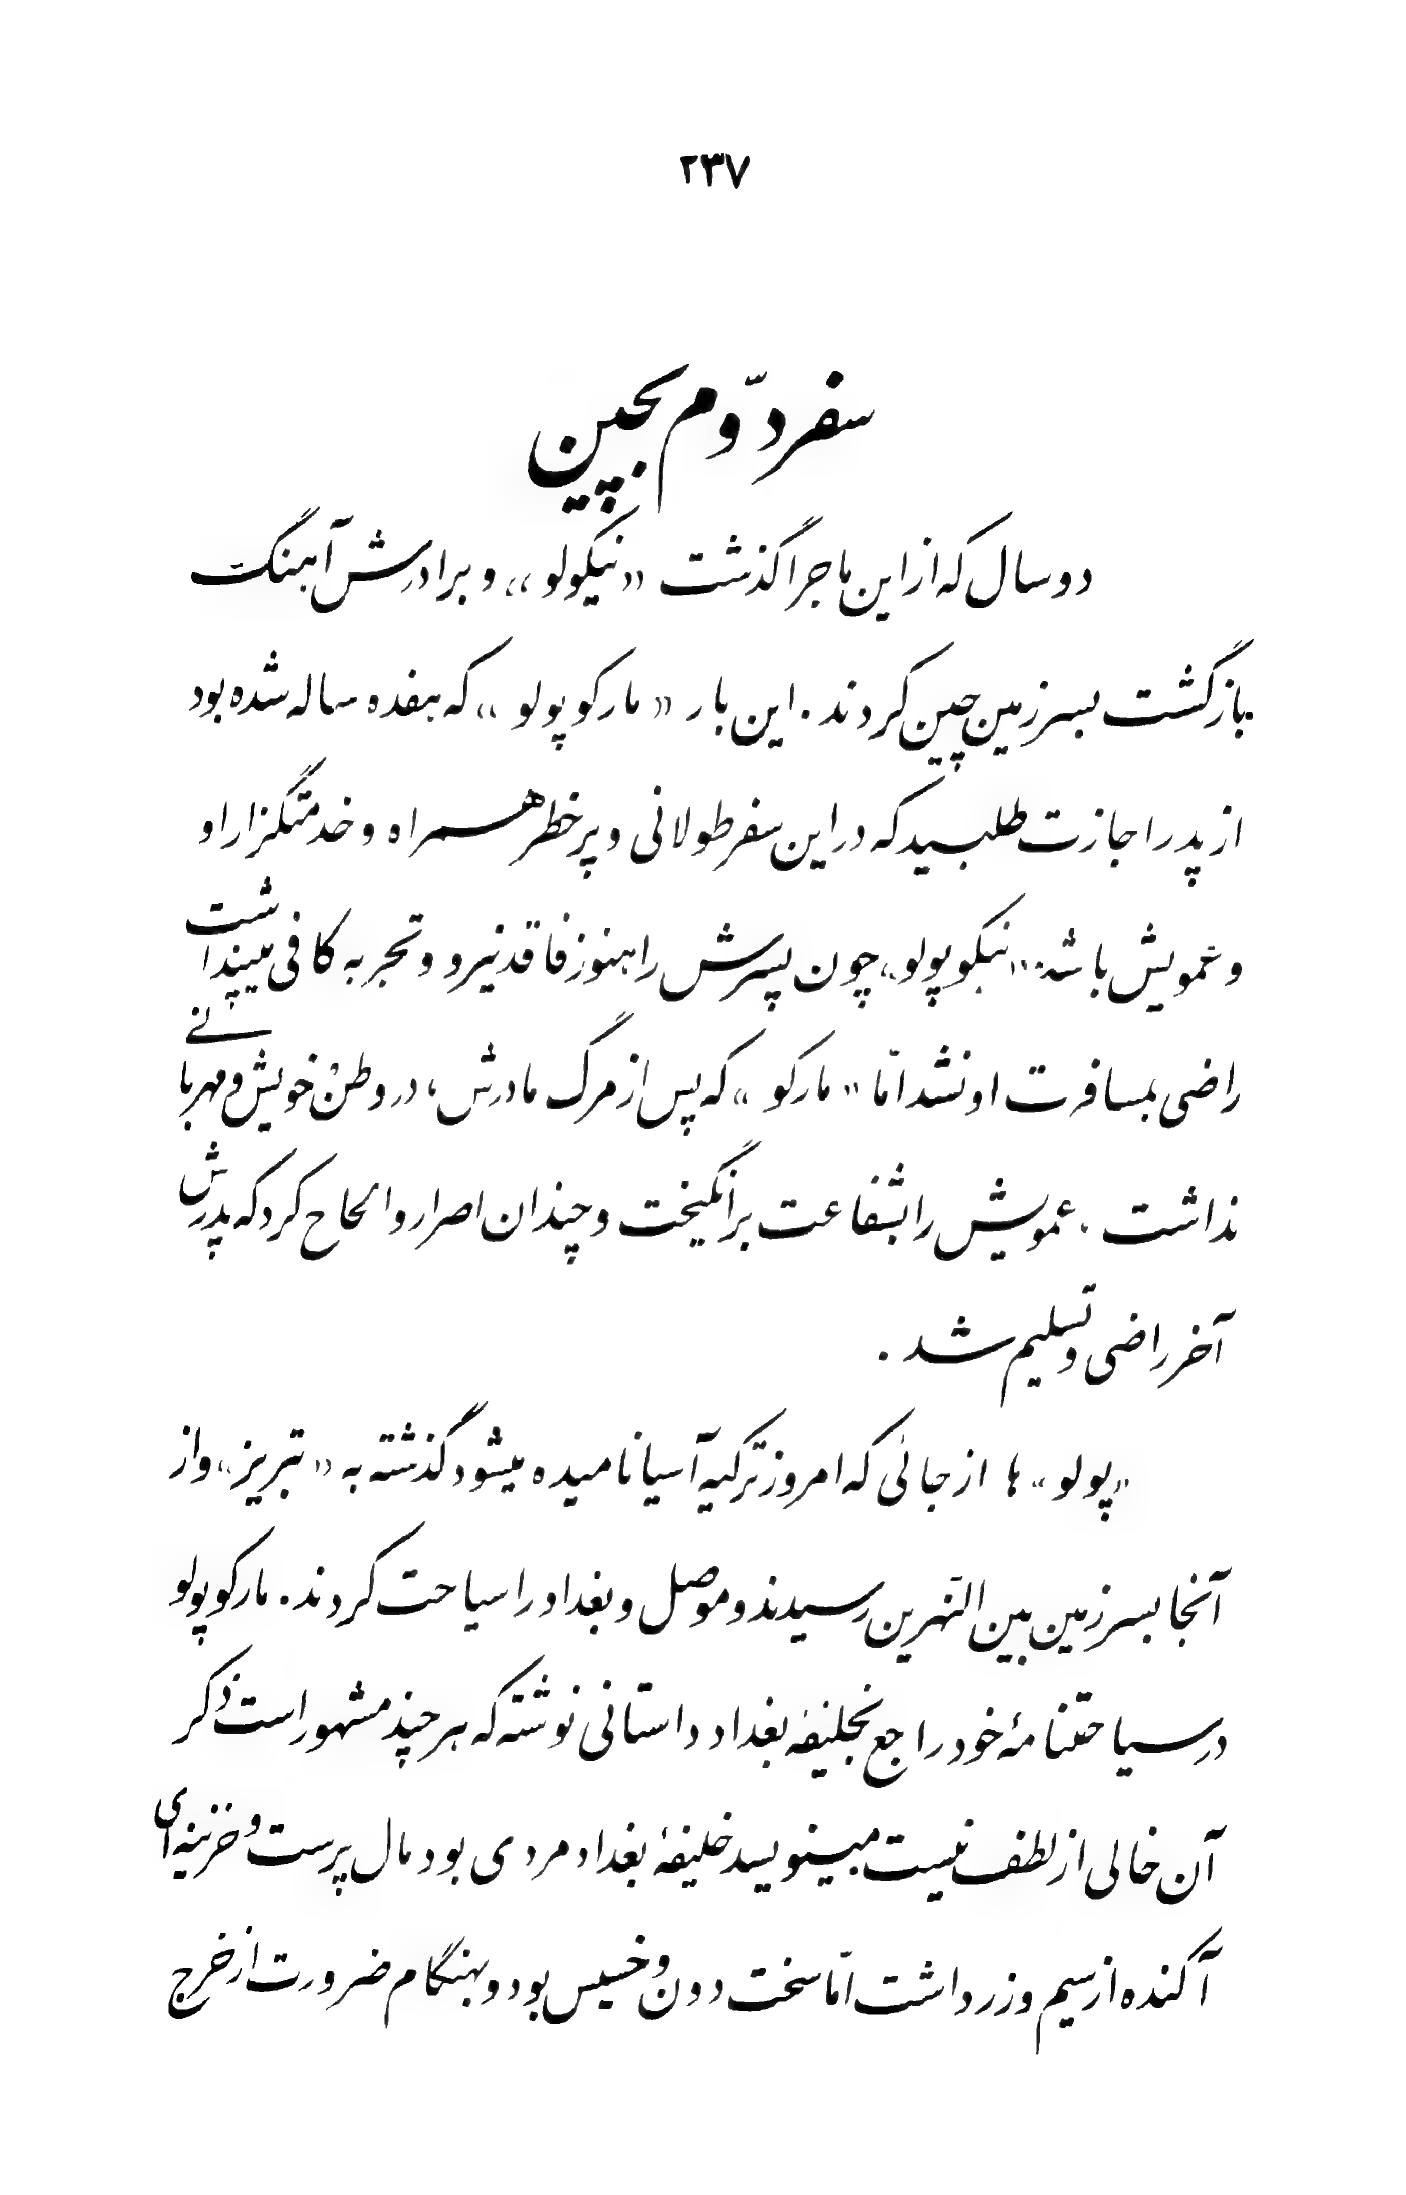 ۲۳۷
سفر دوّم بچین
دو سال که از این ماجرا گذشت «نیکولو» و برادرش آهنگ
بازگشت بسرزمین چین کردند. این بار «مارکو پولو» که هفده ساله شده بود
از پدر اجازت طلبید که در این سفر طولانی و پر خطر همراه و خدمتگزار او
و عمویش باشد. «نیکو پولو» چون پسرش را هنوز فاقد نیرو و تجربه کافی میپنداشت
راضی بمسافرت او نشد امّا «مارکو» که پس از مرگ مادرش، در وطن خویش و مهربانی
نداشت. عمویش را بشفاعت برانگیخت و چندان اصرار و الحاح کرد که پدرش
آخر راضی و تسلیم شد.
«پولو» ها از جائی که امروز ترکیه آسیا نامیده میشود گذشته به «تبریز» و از
آنجا بسرزمین بین النّهرین رسیدند و موصل و بغداد را سیاحت کردند. مارکو پولو
در سیاحتنامهٔ خود راجع بخلیفهٔ بغداد داستانی نوشته که هر چند مشهور است ذکر
آن خالی از لطف نیست مینویسد خلیفهٔ بغداد مردی بود مال پرست و خزینه‌ای
آکنده از سیم و زر داشت امّا سخت دون و خسیس بود و بهنگام ضرورت از خرج